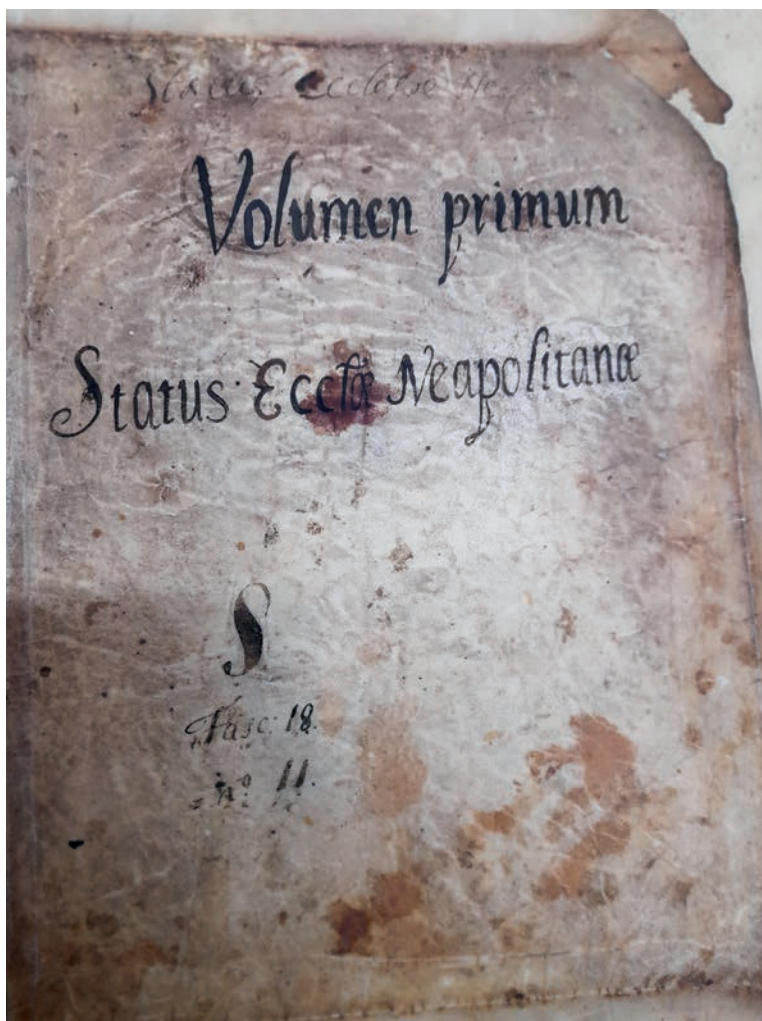 Status Ecclesiae Neap
Volumen primum
Status Eccłæ Neapolitanæ
S
Fasc: 18.
nº 11.